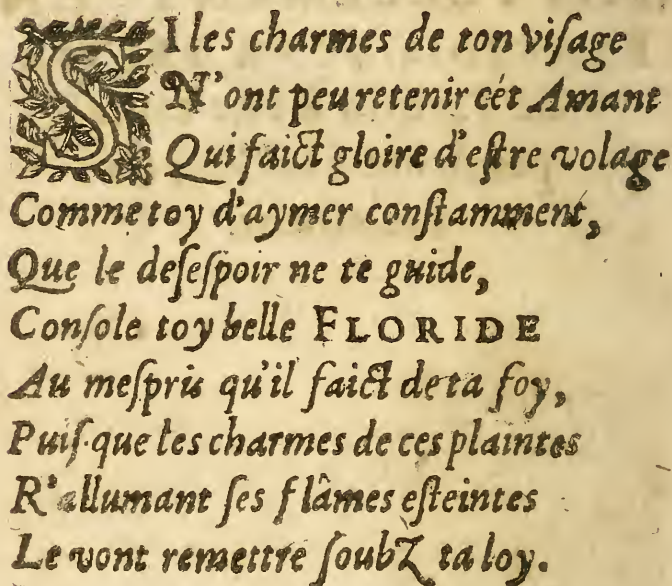 SI les charmes de ton viſage
N'ont peu retenir cét Amant
Qui faict gloire d'eſtre volage
Comme toy d'aymer conſtamment,
Que le deſeſpoir ne te guide,
Conſole toy belle FLORIDE
Au meſpris qu'il faict de ta foy,
Puiſ-que les charmes de ces plaintes
R'allumant ſes flâmes eſteintes
Le vont remettre ſoubz ta loy.